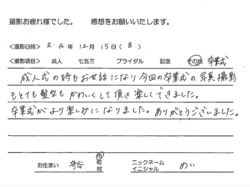 撮影お疲れ様でした。 感想をお願いいたします。
<撮影日時> R. 元年 12月 15日(日)
<撮影項目> 成人 七五三 ブライダル 記念 その他 卒業式
成人式の時もお世話になり今回の卒業式の写真撮影
もとても髪型もかわいくして頂き楽しくできました。
卒業式がより楽しみになりました。ありがとうございました。
お住まい 市 町 村 ニックネーム イニシャル めい